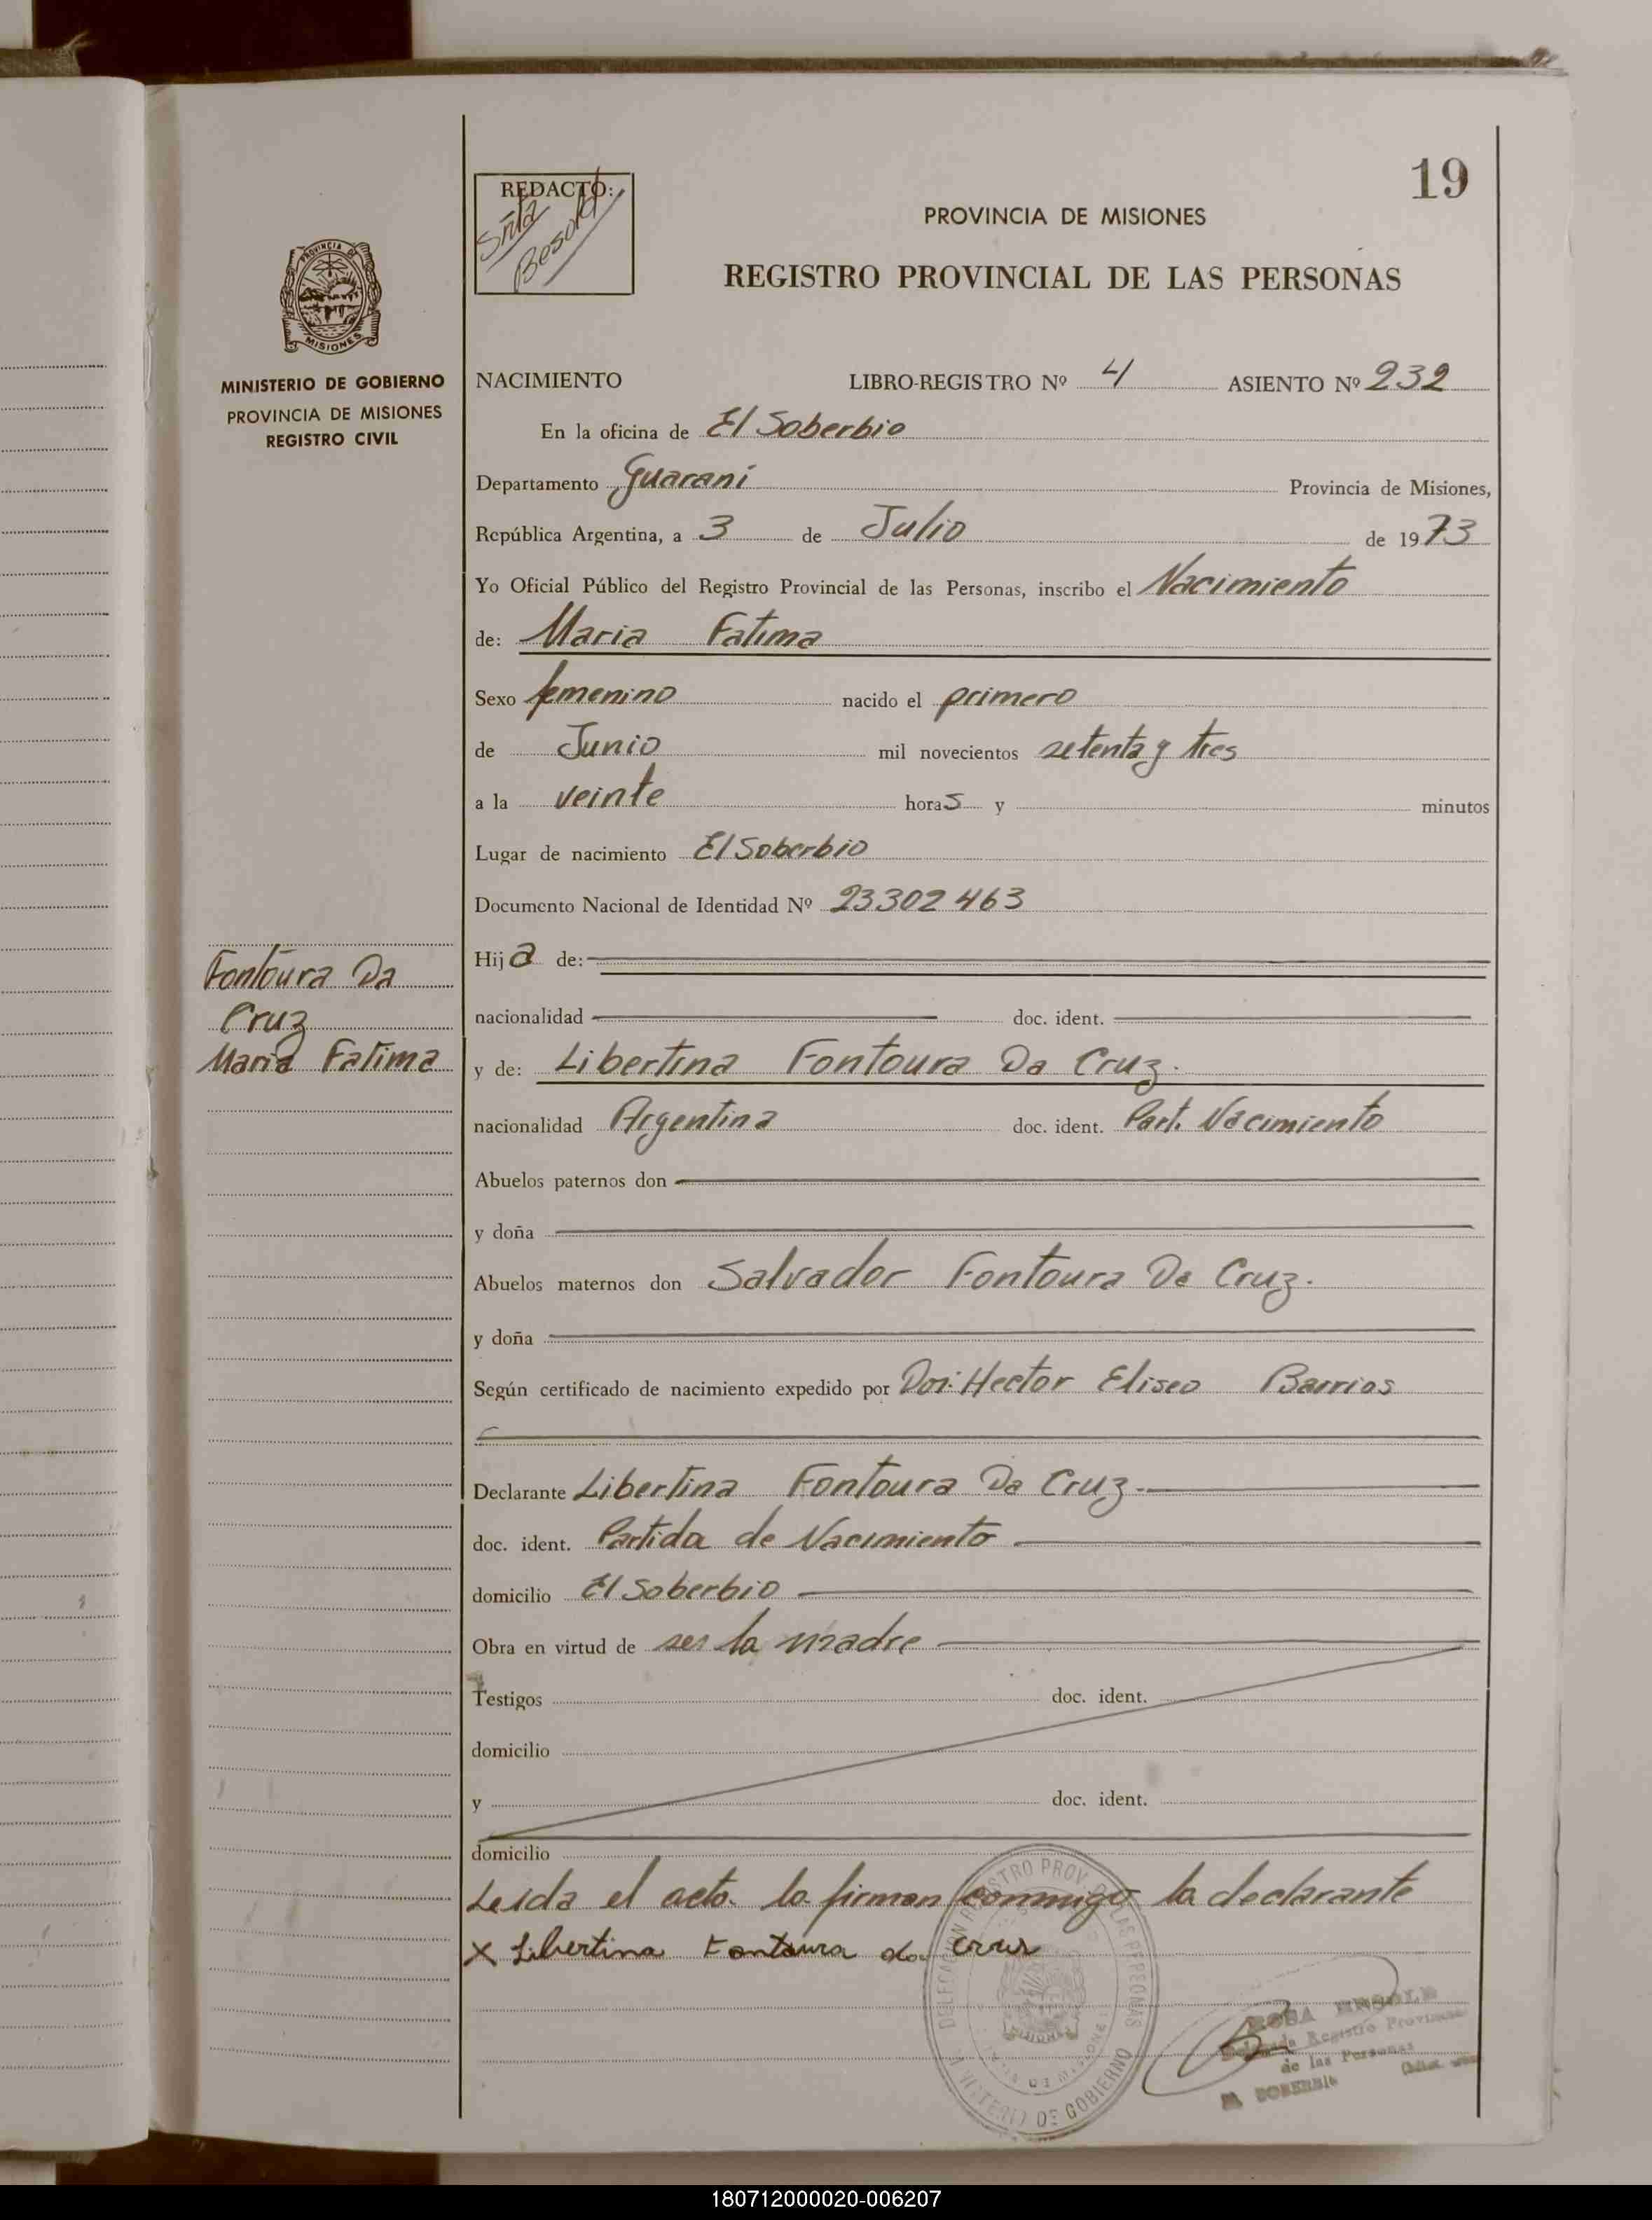 19
REDACTO:
Srita
PROVINCIA DE MISIONES
REGISTRO PROVINCIAL DE LAS PERSONAS
PROVINCIA DE
MISIONES
MINISTERIO DE GOBIERNO
PROVINCIA DE MISIONES
REGISTRO CIVIL
NACIMIENTO LIBRO-REGISTRO Nº 4 ASIENTO Nº 232
En la oficina de El Soberbio
Departamento Guaraní Provincia de Misiones,
República Argentina, a 3 de Julio de 1973
Yo Oficial Público del Registro Provincial de las Personas, inscribo el Nacimiento
de: Maria Fatima
Sexo femenino nacido el primero
de Junio mil novecientos setenta y tres
a la veinte horas y minutos
Lugar de nacimiento El Soberbio
Documento Nacional de Identidad Nº 23302463
Hija de:
Fontoura Da
Cruz
Maria Fatima
nacionalidad doc. ident.
y de: Libertina Fontoura Da Cruz.
nacionalidad Argentina doc. ident. Part. Nacimiento
Abuelos paternos don
y doña
Abuelos maternos don Salvador Fontoura Da Cruz.
y doña
Según certificado de nacimiento expedido por Hector Eliseo Barrios
Declarante Libertina Fontoura Da Cruz.
doc. ident. Partida de Nacimiento
domicilio El Soberbio
Obra en virtud de ser la madre
Testigos doc. ident.
domicilio
y doc. ident.
domicilio
Leida el acta la firman conmigo la declarante
X Libertina Fontoura da Cruz
DELEGACION REGISTRO PROV. DE LAS PERSONAS
MINISTERIO DE GOBIERNO
ROSA
Registro Provincial
de las Personas
SOBERBIO
180712000020-006207